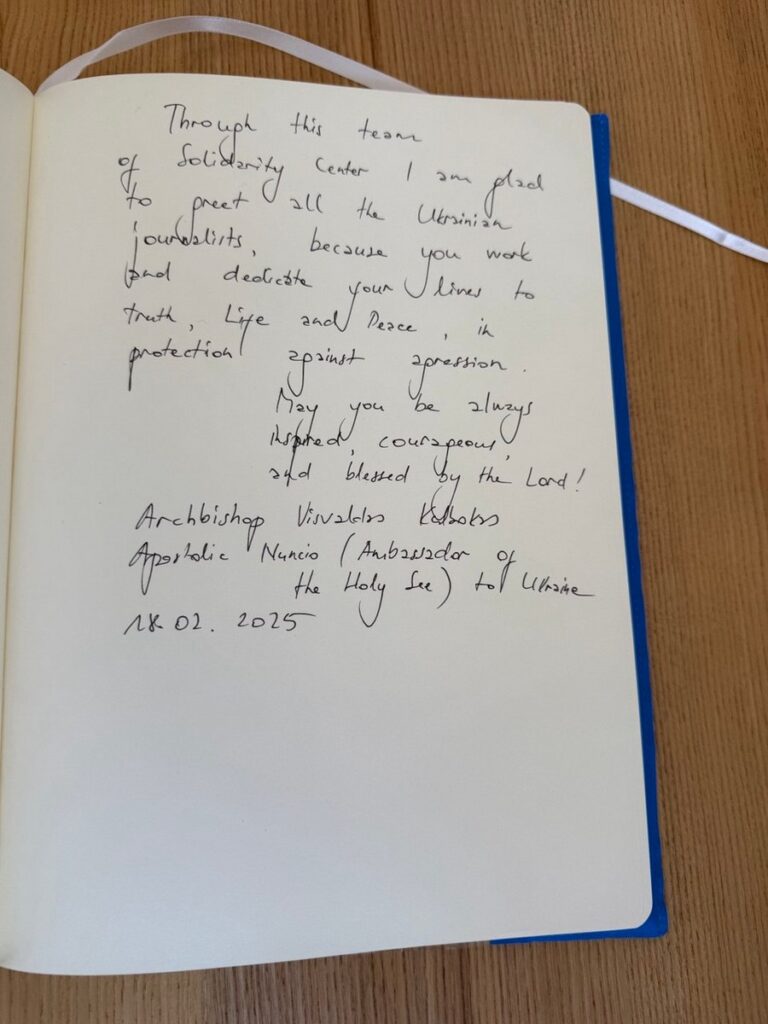 Through this team
of Solidarity Center I am glad
to greet all the Ukrainian
journalists, because you work
and dedicate your lives to
truth, Life and Peace, in
protection against agression.
May you be always
inspired, courageous,
and blessed by the Lord!
Archbishop Visvaldas Kulbokas
Apostolic Nuncio (Ambassador of
the Holy See) to Ukraine
18.02.2025